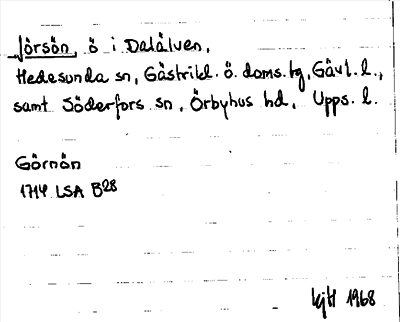 Jörsön, ö i Dalälven,
Hedesunda sn, Gästrikl. ö. doms.hg, Gävl. l.,
samt Söderfors sn, Örbyhus hd, Upps. l.
Görnön
1714 LSA B28
kjH 1968